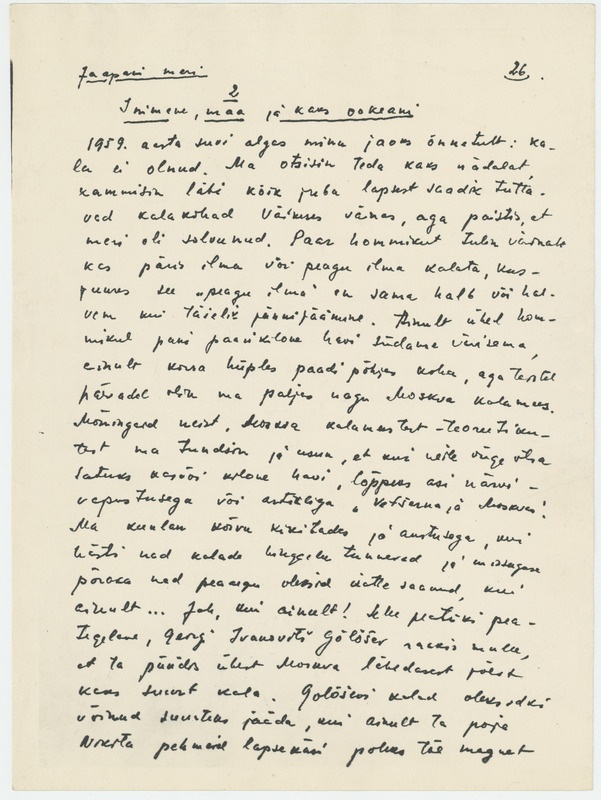 Jaapani meri 26.
2
Inimene, maa ja kaks ookeani
1959. aasta suvi algas minu jaoks õnnetult: ka-
la ei olnud. Ma otsisin teda kaks nädalat,
kammisin läbi kõik juba lapsest saadik tutta-
vad kalakohad Väikeses väinas, aga paistis, et
meri oli solvunud. Paar hommikut tulin värvale
kas päris ilma või peagu ilma kalata, kus-
juures see „peagu ilma" on sama halb või hal-
vem kui täielik jännijäämine. Ainult ühel hom-
mikul pani paarikilone havi südame värisema,
ainult korra hüples paadi põhjas koha, aga teistel
päevadel olin ma paljas nagu Moskva kalamees.
Mõningaid neist, Moskva kalamastest-teoreetiku-
test ma tundsin ja usun, et kui neile õnge otsa
satuks kasvõi kilone havi, lõppeks asi närvi-
vapustusega või artikliga „Vetšernaja Moskvas".
Ma kuulan kõrvu kikitades ja austusega, kui
hästi nad kalade hingeelu tunnevad ja missugase
põraka nad peaaegu oleksid kätte saanud, kui
ainult... Jah, kui ainult! Selle peatüki pea-
tegelane, Georgi Ivanovitš Golõšev rääkis mulle,
et ta püüdis ühest Moskva lähedasest jõest
kaks suurt kala. Golõševi kalad oleksidki
võinud suurteks jääda, kui ainult ta poja
Nikita pehmeid lapsekäsi poleks täl magnet